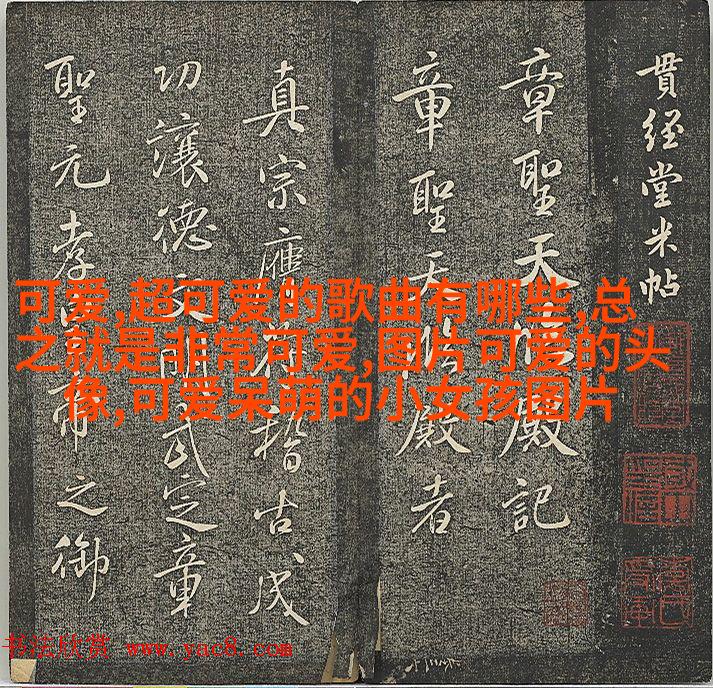 貫經堂米帖
章聖天臨殿記
章聖天臨殿者
真宗膺符稽古成
功讓德文明武定章
聖元孝皇帝之御
可爱,超可爱的歌曲有哪些,总
之就是非常可爱,图片可爱的头
像,可爱呆萌的小女孩图片
书法欣赏 www.yac8.com